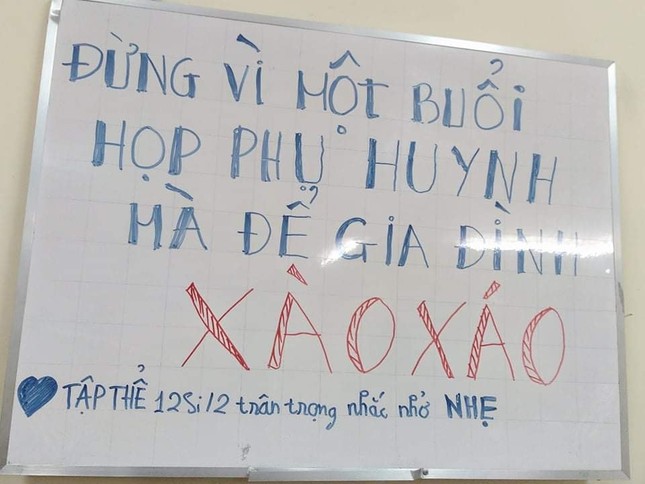 ĐỪNG VÌ MỘT BUỔI
HỌP PHỤ HUYNH
MÀ ĐỂ GIA ĐÌNH
XÀO XÁO
TẬP THỂ 12Si/2 trân trọng nhắc nhở NHẸ